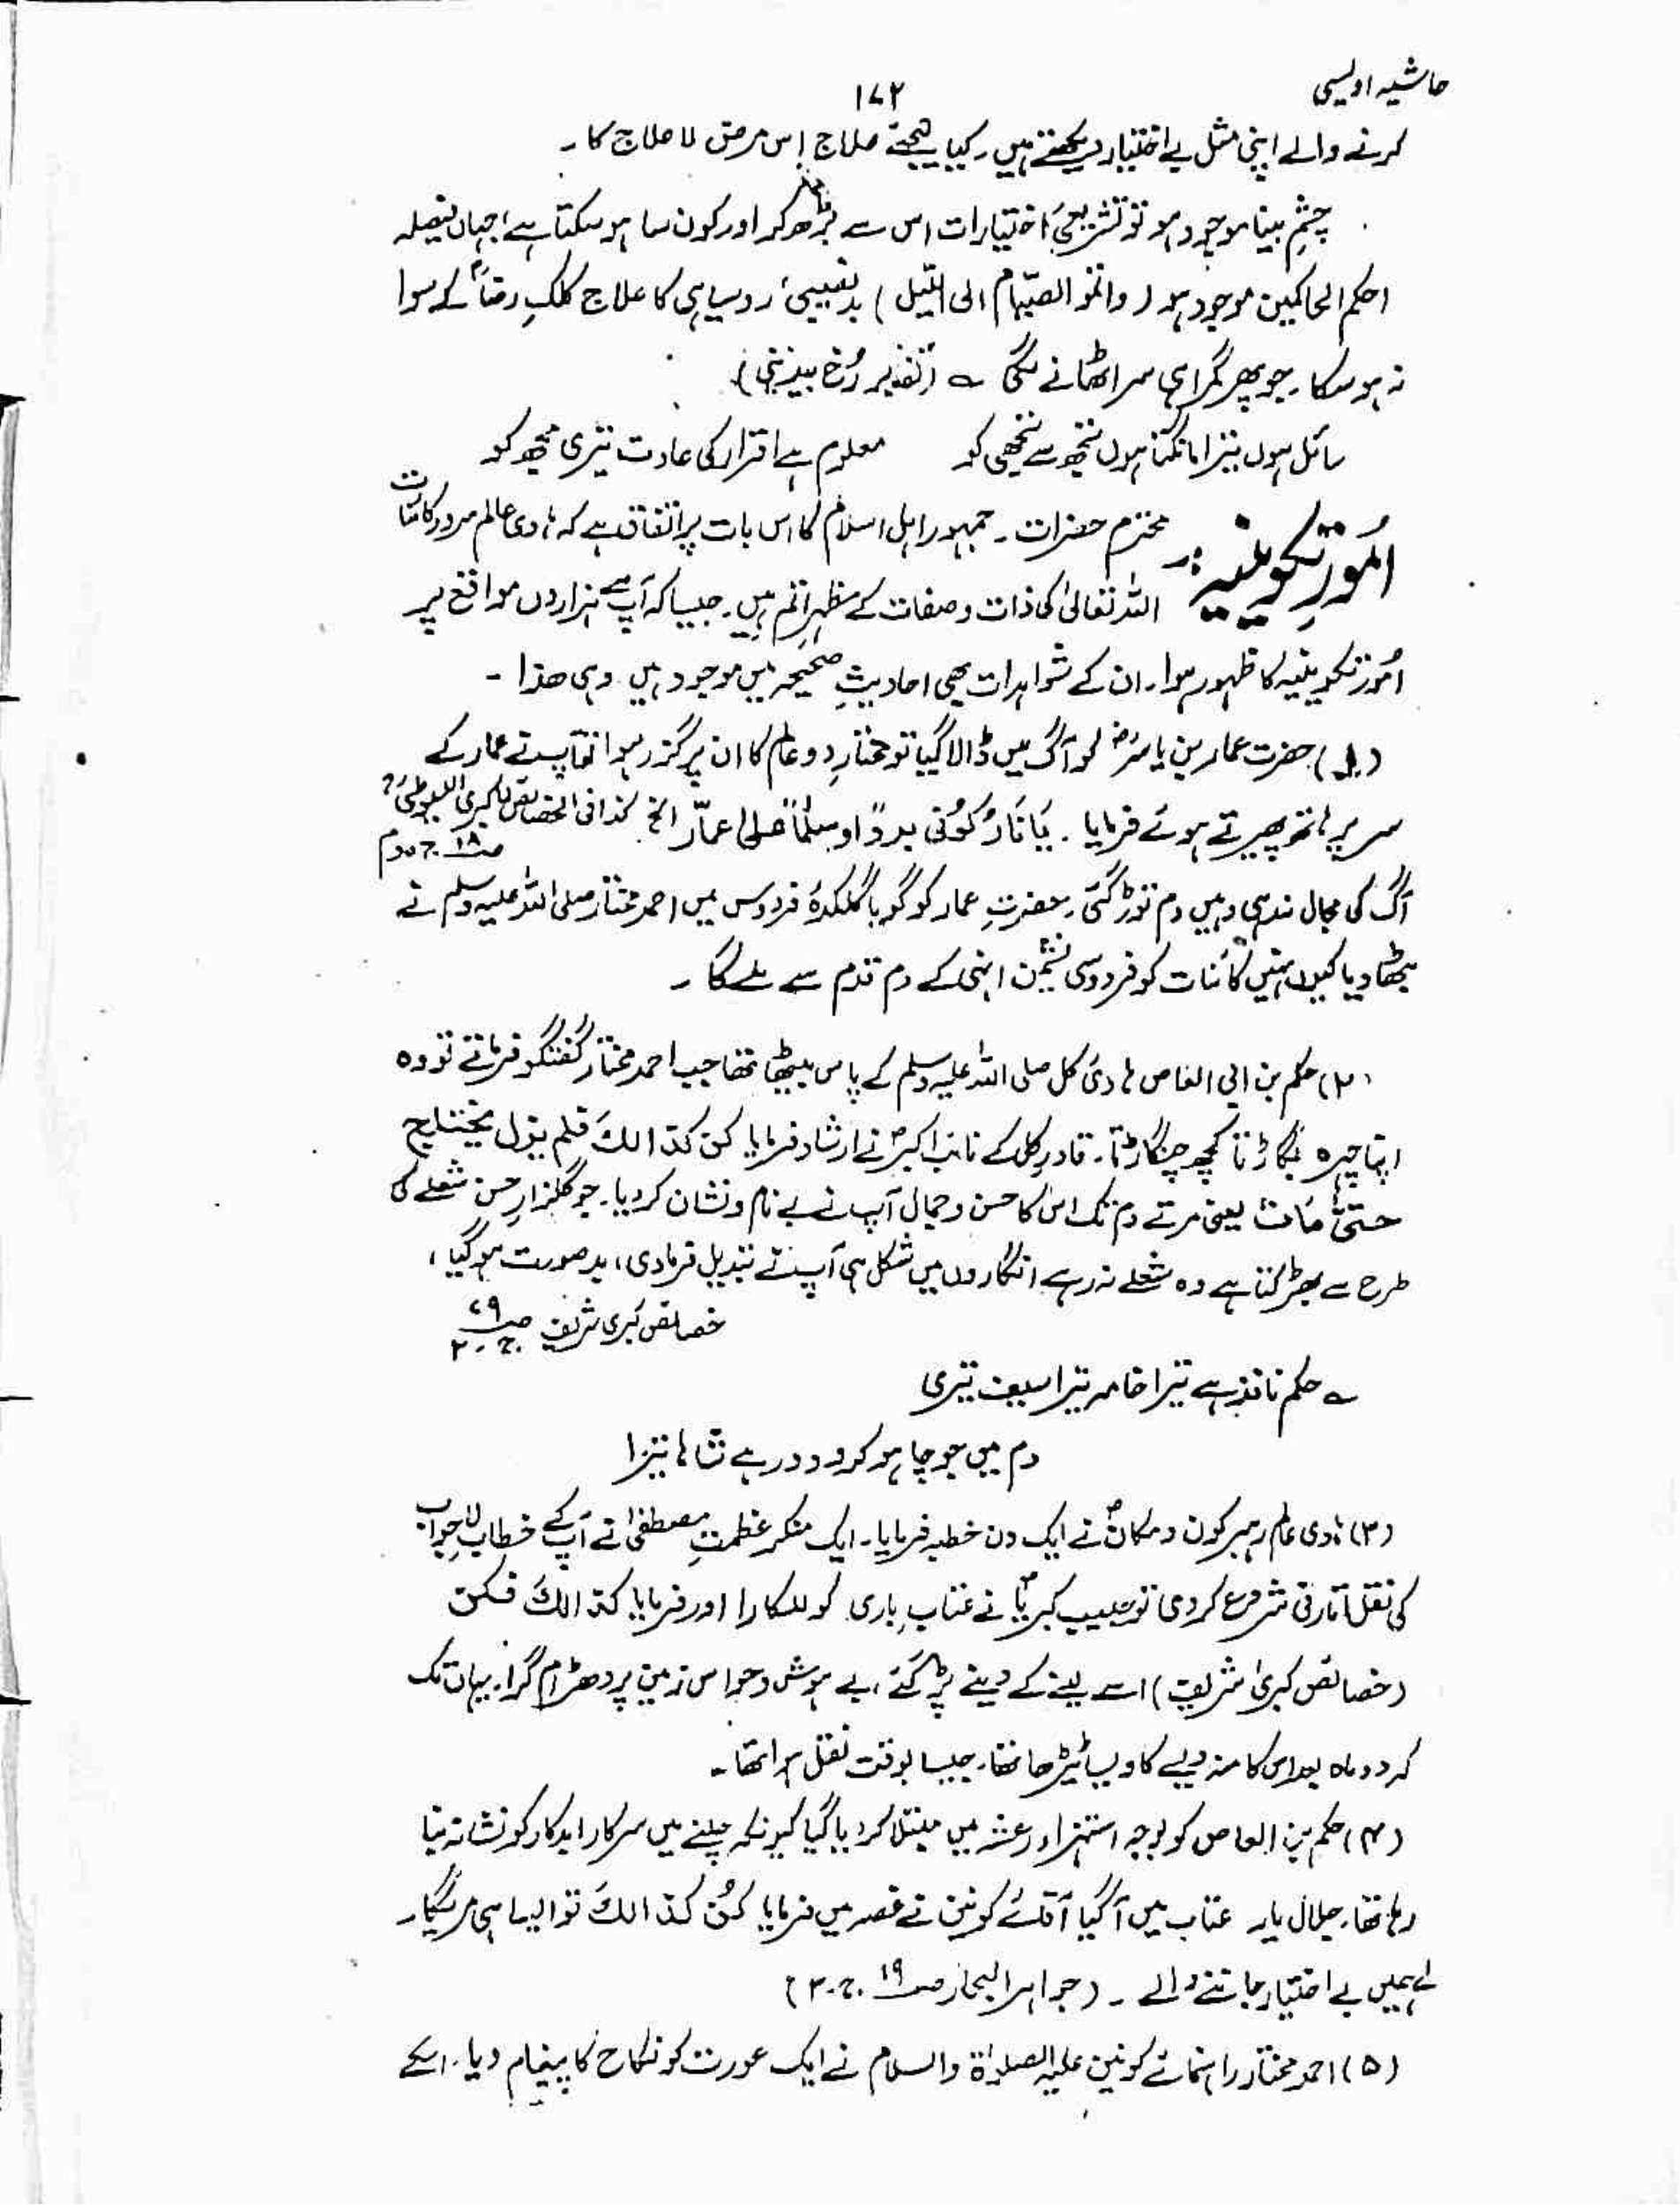 حاشیہ اویسی
۱۷۲
کرنے والے اپنی مثل بے اختیار دیکھتے ہیں۔ کیا کیجئے علاج اس مرض لا علاج کا۔
چشمِ بینا موجود ہو تو تشریعی اختیارات اس سے بڑھ کر اور کون سا ہو سکتا ہے، جہاں فیصلہ
احکم الحاکمین موجود ہو (واتموا الصیام الی اللّیل) بدنصیبی، روسیاہی کا علاج کلکِ رضاؒ کے سوا
نہ ہو سکا۔ جو پھر گمراہی سر اٹھانے لگی ؎
سائل ہوں تیرا مانگتا ہوں تجھ سے تجھی کو معلوم ہے اقرار کی عادت تیری مجھ کو
اُمورِ تکوینیہ :۔ محترم حضرات۔ جمہور اہل اسلام کا اس بات پر اتفاق ہے کہ ہادی عالم سرور کائنات
اللہ تعالیٰ کی ذات و صفات کے مظہر اتم ہیں۔ جیسا کہ آپ سے ہزاروں مواقع پر
اُمور تکوینیہ کا ظہور ہوا۔ ان کے شواہدات بھی احادیثِ صحیحہ میں موجود ہیں وہی ھذا۔
(۱) حضرت عمار بن یاسرؓ کو آگ میں ڈالا گیا تو مختارِ دو عالم کا ان پر گزر ہوا تو آپ نے عمار کے
سر پر ہاتھ پھیرتے ہوئے فرمایا۔ یَا نَارُ کُوْنِی بردًا و سلمًا علیٰ عمّار الخ کذافی الخصائص الکبریٰ للسیوطیؒ
صـ ۱۸ ج دوم
آگ کی مجال نہ رہی وہیں دم توڑ گئی۔ حضرتِ عمار کو گویا گلکدۂ فردوس میں احمد مختار صلی اللہ علیہ وسلم نے
بٹھا دیا کیوں نہیں کائنات کو فردوسی نشیمن انہی کے دم قدم سے ملے گا۔
(۲) حکم بن ابی العاص ہادیٔ کل صلی اللہ علیہ وسلم کے پاس بیٹھا تھا جب احمد مختار گفتگو فرماتے تو وہ
اپنا چہرہ بگاڑتا کچھ چنگاڑتا۔ قادرِ کل کے نائبِ اکبرؐ نے ارشاد فرمایا کن کذالکَ فلم یزل یختلج
حتیّٰ مَاتَ یعنی مرتے دم تک اس کا حسن و جمال آپ نے بے نام و نشان کر دیا۔ جو گلزارِ حسن شعلے کی
طرح سے بھڑکتا ہے وہ شعلے نہ رہے انگاروں میں شکل ہی آپ نے تبدیل فرما دی، بدصورت ہو گیا،
خصائص کبریٰ شریف صـ ۷۹ ج۔۲
؎ حکم نافذ ہے تیرا خامہ تیرا سیف تیری
دم میں جو چاہو کرو دور ہے شاہا تیرا
(۳) ہادی عالم رہبر کون و مکانؐ نے ایک دن خطبہ فرمایا۔ ایک منکر عظمتِ مصطفیٰ نے آپ کے خطاب لاجواب
کی نقل اتارنی شروع کر دی تو حبیب کبریاؐ نے عتابِ باری کو للکارا اور فرمایا کذالکَ فکن
(خصائص کبریٰ شریف) اسے لینے کے دینے پڑ گئے، بے ہوش و حواس زمین پر دھڑام گرا۔ یہاں تک
کہ دو ماہ بعد اس کا منہ ویسے کا ویسا ٹیڑھا تھا۔ جیسا بوقت نقل ہوا تھا۔
(۴) حکم بن العاص کو بوجہ استہزاء رعشہ میں مبتلا کر دیا گیا کیونکہ چلنے میں سرکار ابدکار کو نشانہ بنا
رہا تھا۔ جلال یار عتاب میں آ گیا آقائے کونین نے غصہ میں فرمایا کُن کذالکَ تو ایسا ہی مریگا۔
اے ہمیں بے اختیار جاننے والے۔ (جواہر البحار صـ ۱۹ ج۔۳)
(۵) احمد مختار راہنمائے کونین علیہ الصلوٰۃ والسلام نے ایک عورت کو نکاح کا پیغام دیا۔ اسکے